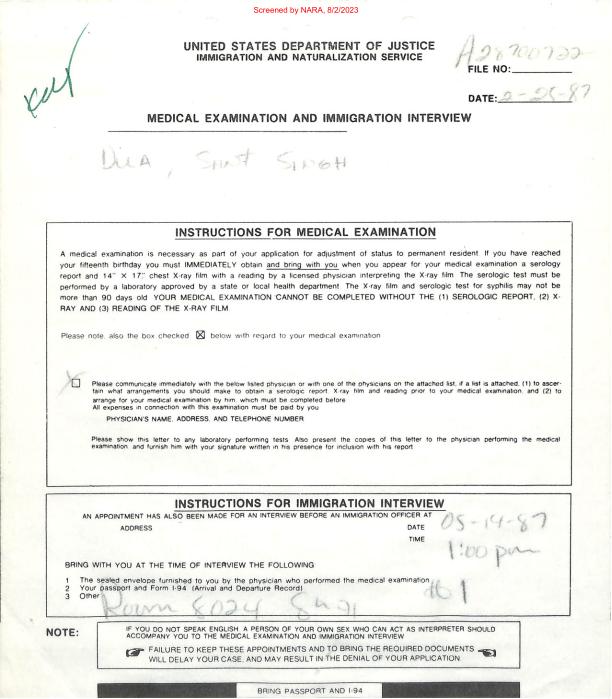 Screened by NARA, 8/2/2023
UNITED STATES DEPARTMENT OF JUSTICE
IMMIGRATION AND NATURALIZATION SERVICE
A28700722
FILE NO:
DATE: 2-25-87
MEDICAL EXAMINATION AND IMMIGRATION INTERVIEW
SINGH
INSTRUCTIONS FOR MEDICAL EXAMINATION
A medical examination is necessary as part of your application for adjustment of status to permanent resident. If you have reached
your fifteenth birthday you must IMMEDIATELY obtain and bring with you when you appear for your medical examination a serology
report and 14" X 17" chest X-ray film with a reading by a licensed physician interpreting the X-ray film The serologic test must be
performed by a laboratory approved by a state or local health department. The X-ray film and serologic test for syphilis may not be
more than 90 days old YOUR MEDICAL EXAMINATION CANNOT BE COMPLETED WITHOUT THE (1) SEROLOGIC REPORT, (2) X-
RAY AND (3) READING OF THE X-RAY FILM
Please note, also the box checked ☒ below with regard to your medical examination
Please communicate immediately with the below listed physician or with one of the physicians on the attached list, if a list is attached, (1) to ascer-
tain what arrangements you should make to obtain a serologic report X-ray film and reading prior to your medical examination, and (2) to
arrange for your medical examination by him, which must be completed before
All expenses in connection with this examination must be paid by you
PHYSICIAN'S NAME, ADDRESS, AND TELEPHONE NUMBER
Please show this letter to any laboratory performing tests Also present the copies of this letter to the physician performing the medical
examination, and furnish him with your signature written in his presence for inclusion with his report
INSTRUCTIONS FOR IMMIGRATION INTERVIEW
AN APPOINTMENT HAS ALSO BEEN MADE FOR AN INTERVIEW BEFORE AN IMMIGRATION OFFICER AT
ADDRESS DATE 05-14-87
TIME 1:00 pm
BRING WITH YOU AT THE TIME OF INTERVIEW THE FOLLOWING
1 The sealed envelope furnished to you by the physician who performed the medical examination
2 Your passport and Form I-94 (Arrival and Departure Record)
3 Other Room 8024 #1
NOTE: IF YOU DO NOT SPEAK ENGLISH A PERSON OF YOUR OWN SEX WHO CAN ACT AS INTERPRETER SHOULD
ACCOMPANY YOU TO THE MEDICAL EXAMINATION AND IMMIGRATION INTERVIEW
FAILURE TO KEEP THESE APPOINTMENTS AND TO BRING THE REQUIRED DOCUMENTS
WILL DELAY YOUR CASE, AND MAY RESULT IN THE DENIAL OF YOUR APPLICATION
BRING PASSPORT AND I-94